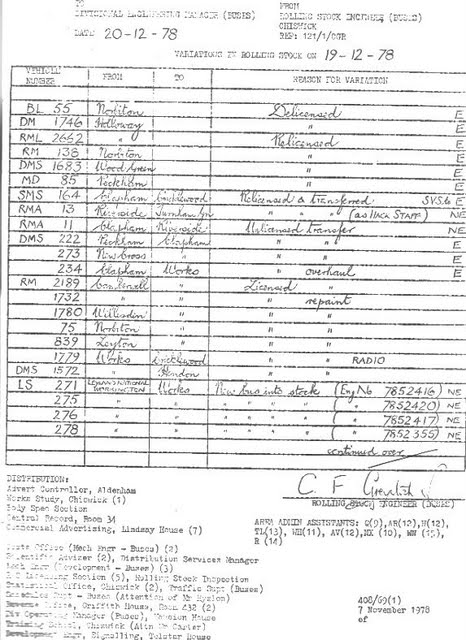 TO
DIVISIONAL ENGINEERING MANAGER (BUSES)
DATE 20-12-78
FROM
ROLLING STOCK ENGINEER (BUSES)
CHISWICK
REF: 121/1/CGR
VARIATIONS IN ROLLING STOCK ON 19-12-78
VEHICLE NUMBER FROM TO REASON FOR VARIATION
BL 55 Norbiton Delicensed E
DM 1746 Holloway " E
RML 2662 " Relicensed E
RM 138 Norbiton " E
DMS 1683 Wood Green " E
MD 85 Peckham " E
SMS 164 Clapham Cricklewood Relicensed & transferred SVS6 E
RMA 13 Riverside Turnham Gn " " " (as HACK STAFF) NE
RMA 11 Clapham Riverside Unlicensed transfer NE
DMS 222 Peckham Clapham " " E
273 New Cross " " " E
234 Clapham Works " overhaul E
RM 2189 Camberwell " Licensed "
1732 " " " repaint
1780 Willesden " " "
75 Norbiton " " "
839 Leyton " " "
1779 Works Cricklewood " " RADIO
DMS 1572 " Hendon " "
LS 271 LEYLAND NATIONAL WORKINGTON Works New bus into stock (Eng No 7852416) NE
275 " " " " " " ( " 7852420) NE
276 " " " " " " ( " 7852417) NE
278 " " " " " " ( " 7852355) NE
continued over
DISTRIBUTION:
Advert Controller, Aldenham
Works Study, Chiswick (1)
Body Spec Section
Central Record, Room 34
Commercial Advertising, Lindsay House (7)
ROLLING STOCK ENGINEER (BUSES)
AREA ADMIN ASSISTANTS: Q(9), AR(12), H(12),
TL(13), WH(11), AV(12), HX (10), WW (15),
R (14)
Office (Mech Engr - Buses) (2)
Scientific Adviser (2), Distribution Services Manager
Engr (Development - Buses) (3)
Licensing Section (5), Rolling Stock Inspection
Statistical Office, Chiswick (2), Traffic Supt (Buses)
Schedules Dept - Buses (Attention of Mr Hyslon)
Revenue Office, Griffith House, Room 432 (2)
Div Operating Manager (Buses), Mansion House
Training School, Chiswick (Attn Mr Carter)
Development Engr, Signalling, Telstar House
408/69(1)
7 November 1978